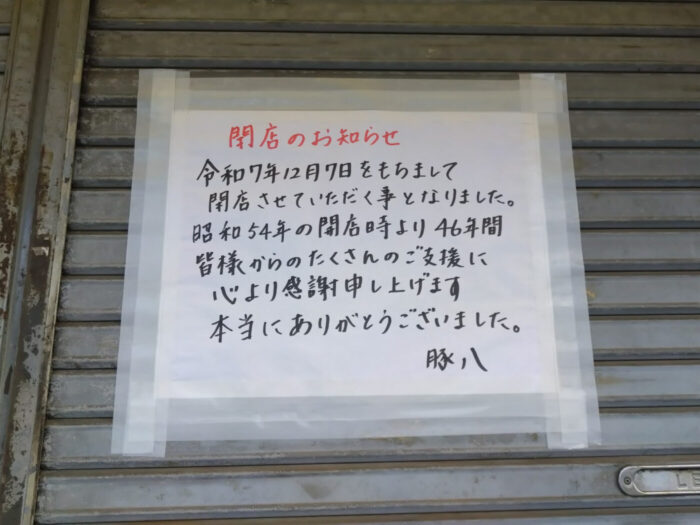 閉店のお知らせ
令和7年12月7日をもちまして
閉店させていただく事となりました。
昭和54年の開店時より46年間
皆様からのたくさんのご支援に
心より感謝申し上げます
本当にありがとうございました。
豚八